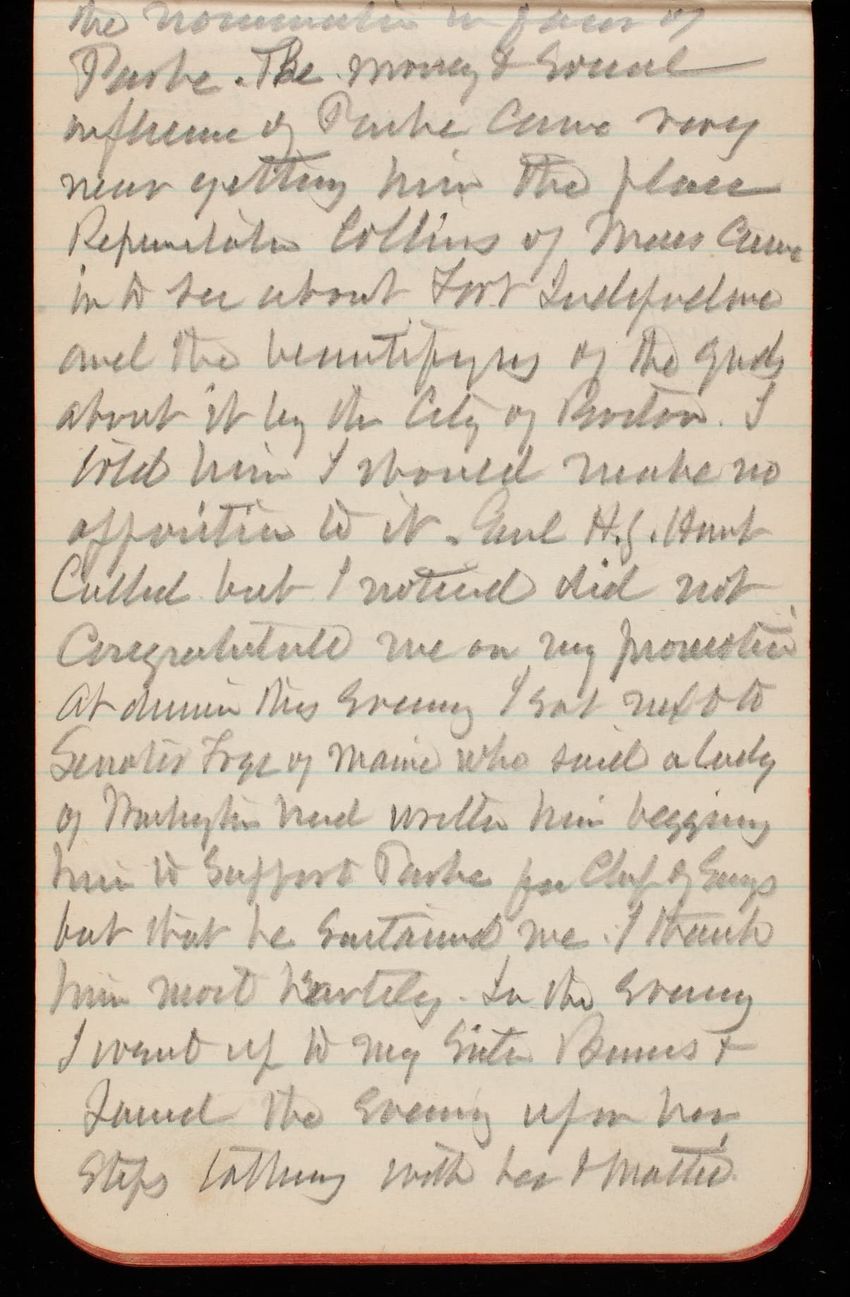 the nomination in favor of
Parke. The money & social
influence of Parke came very
near getting him the place
Representative Collins of Mass came
in to see about Fort Independence
and the beautifying of the gnds
about it by the City of Boston. I
told him I should make no
opposition to it. Genl H.J. Hunt
Called but I noticed did not
Congratulate me on my promotion
At dinner this evening I sat next to
Senator Frye of Maine who said a lady
of Washington had written him begging
him to support Parke for Chf of Engs
but that he sustained me. I thank
him most heartily. In the evening
I went up to my Sister Burns &
found the evening upon her
steps talking with her & Mattie.